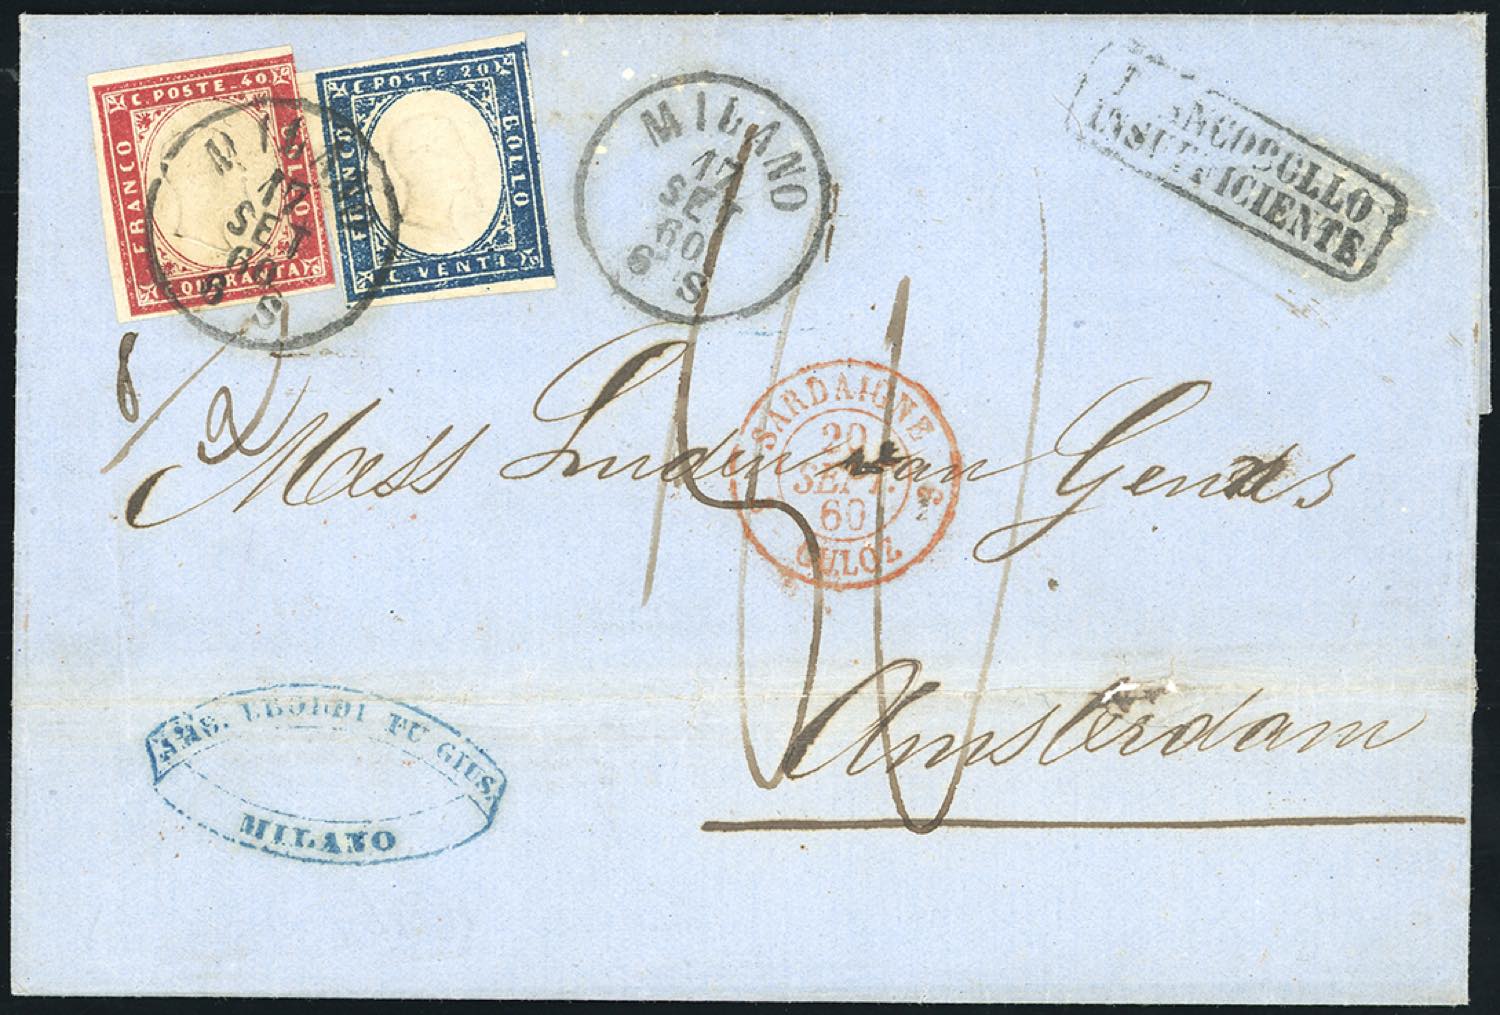 C. POSTE 40
FRANCO
BOLLO
C. QUARANTA
C. POSTE 20
FRANCO
BOLLO
C. VENTI
MILANO
17
SET
60
6 S
MILANO
17
SET
60
6 S
FRANCOBOLLO
INSUFFICIENTE
8/2
SARDAIGNE
20
SEPT.
60
CULOZ
Mess van
Amsterdam
FU GIUS.
MILANO